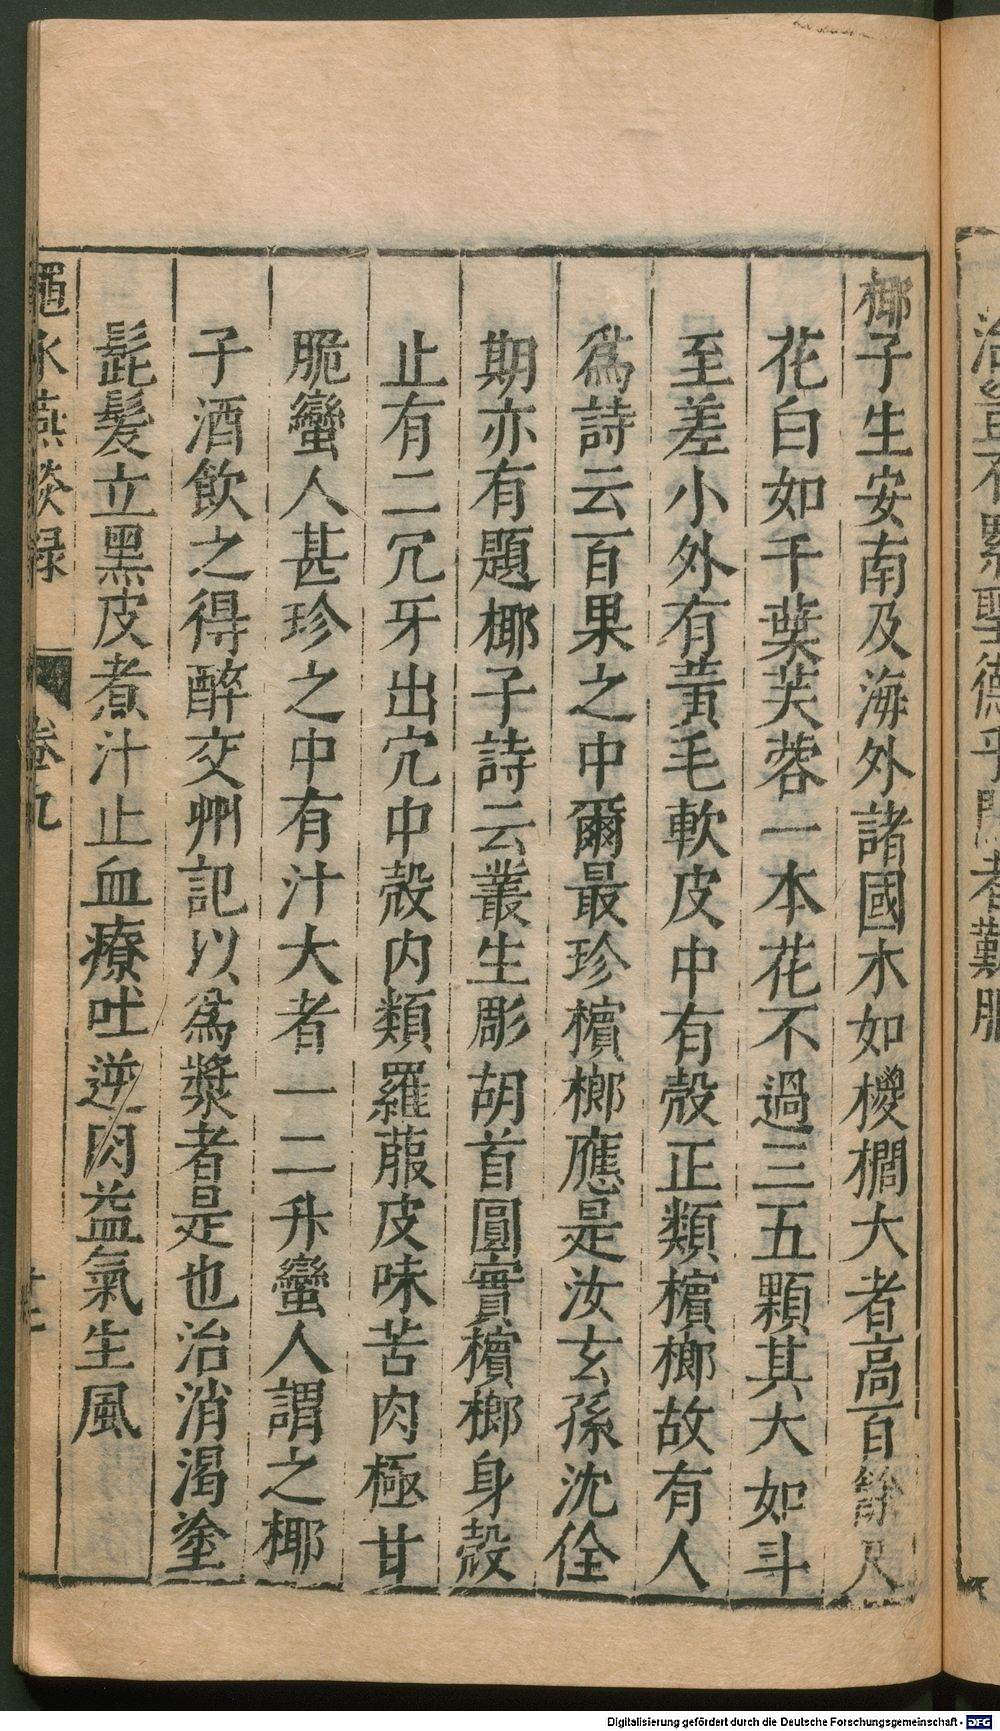 椰子生安南及海外諸國木如椶櫚大者高百餘尺
花白如千葉芙蓉一本花不過三五顆其大如斗
至差小外有黃毛軟皮中有殼正類檳榔故有人
爲詩云百果之中爾最珍檳榔應是汝玄孫沈佺
期亦有題椰子詩云叢生彫胡首圓實檳榔身殼
止有二冗牙出穴中殼內類羅菔皮味苦肉極甘
脆蠻人甚珍之中有汁大者一二升蠻人謂之椰
子酒飲之得醉交州記以爲漿者是也治消渴塗
髭髮立黑皮煮汁止血療吐逆肉益氣生風
澠水燕談錄 卷九
Digitalisierung gefördert durch die Deutsche Forschungsgemeinschaft - DFG